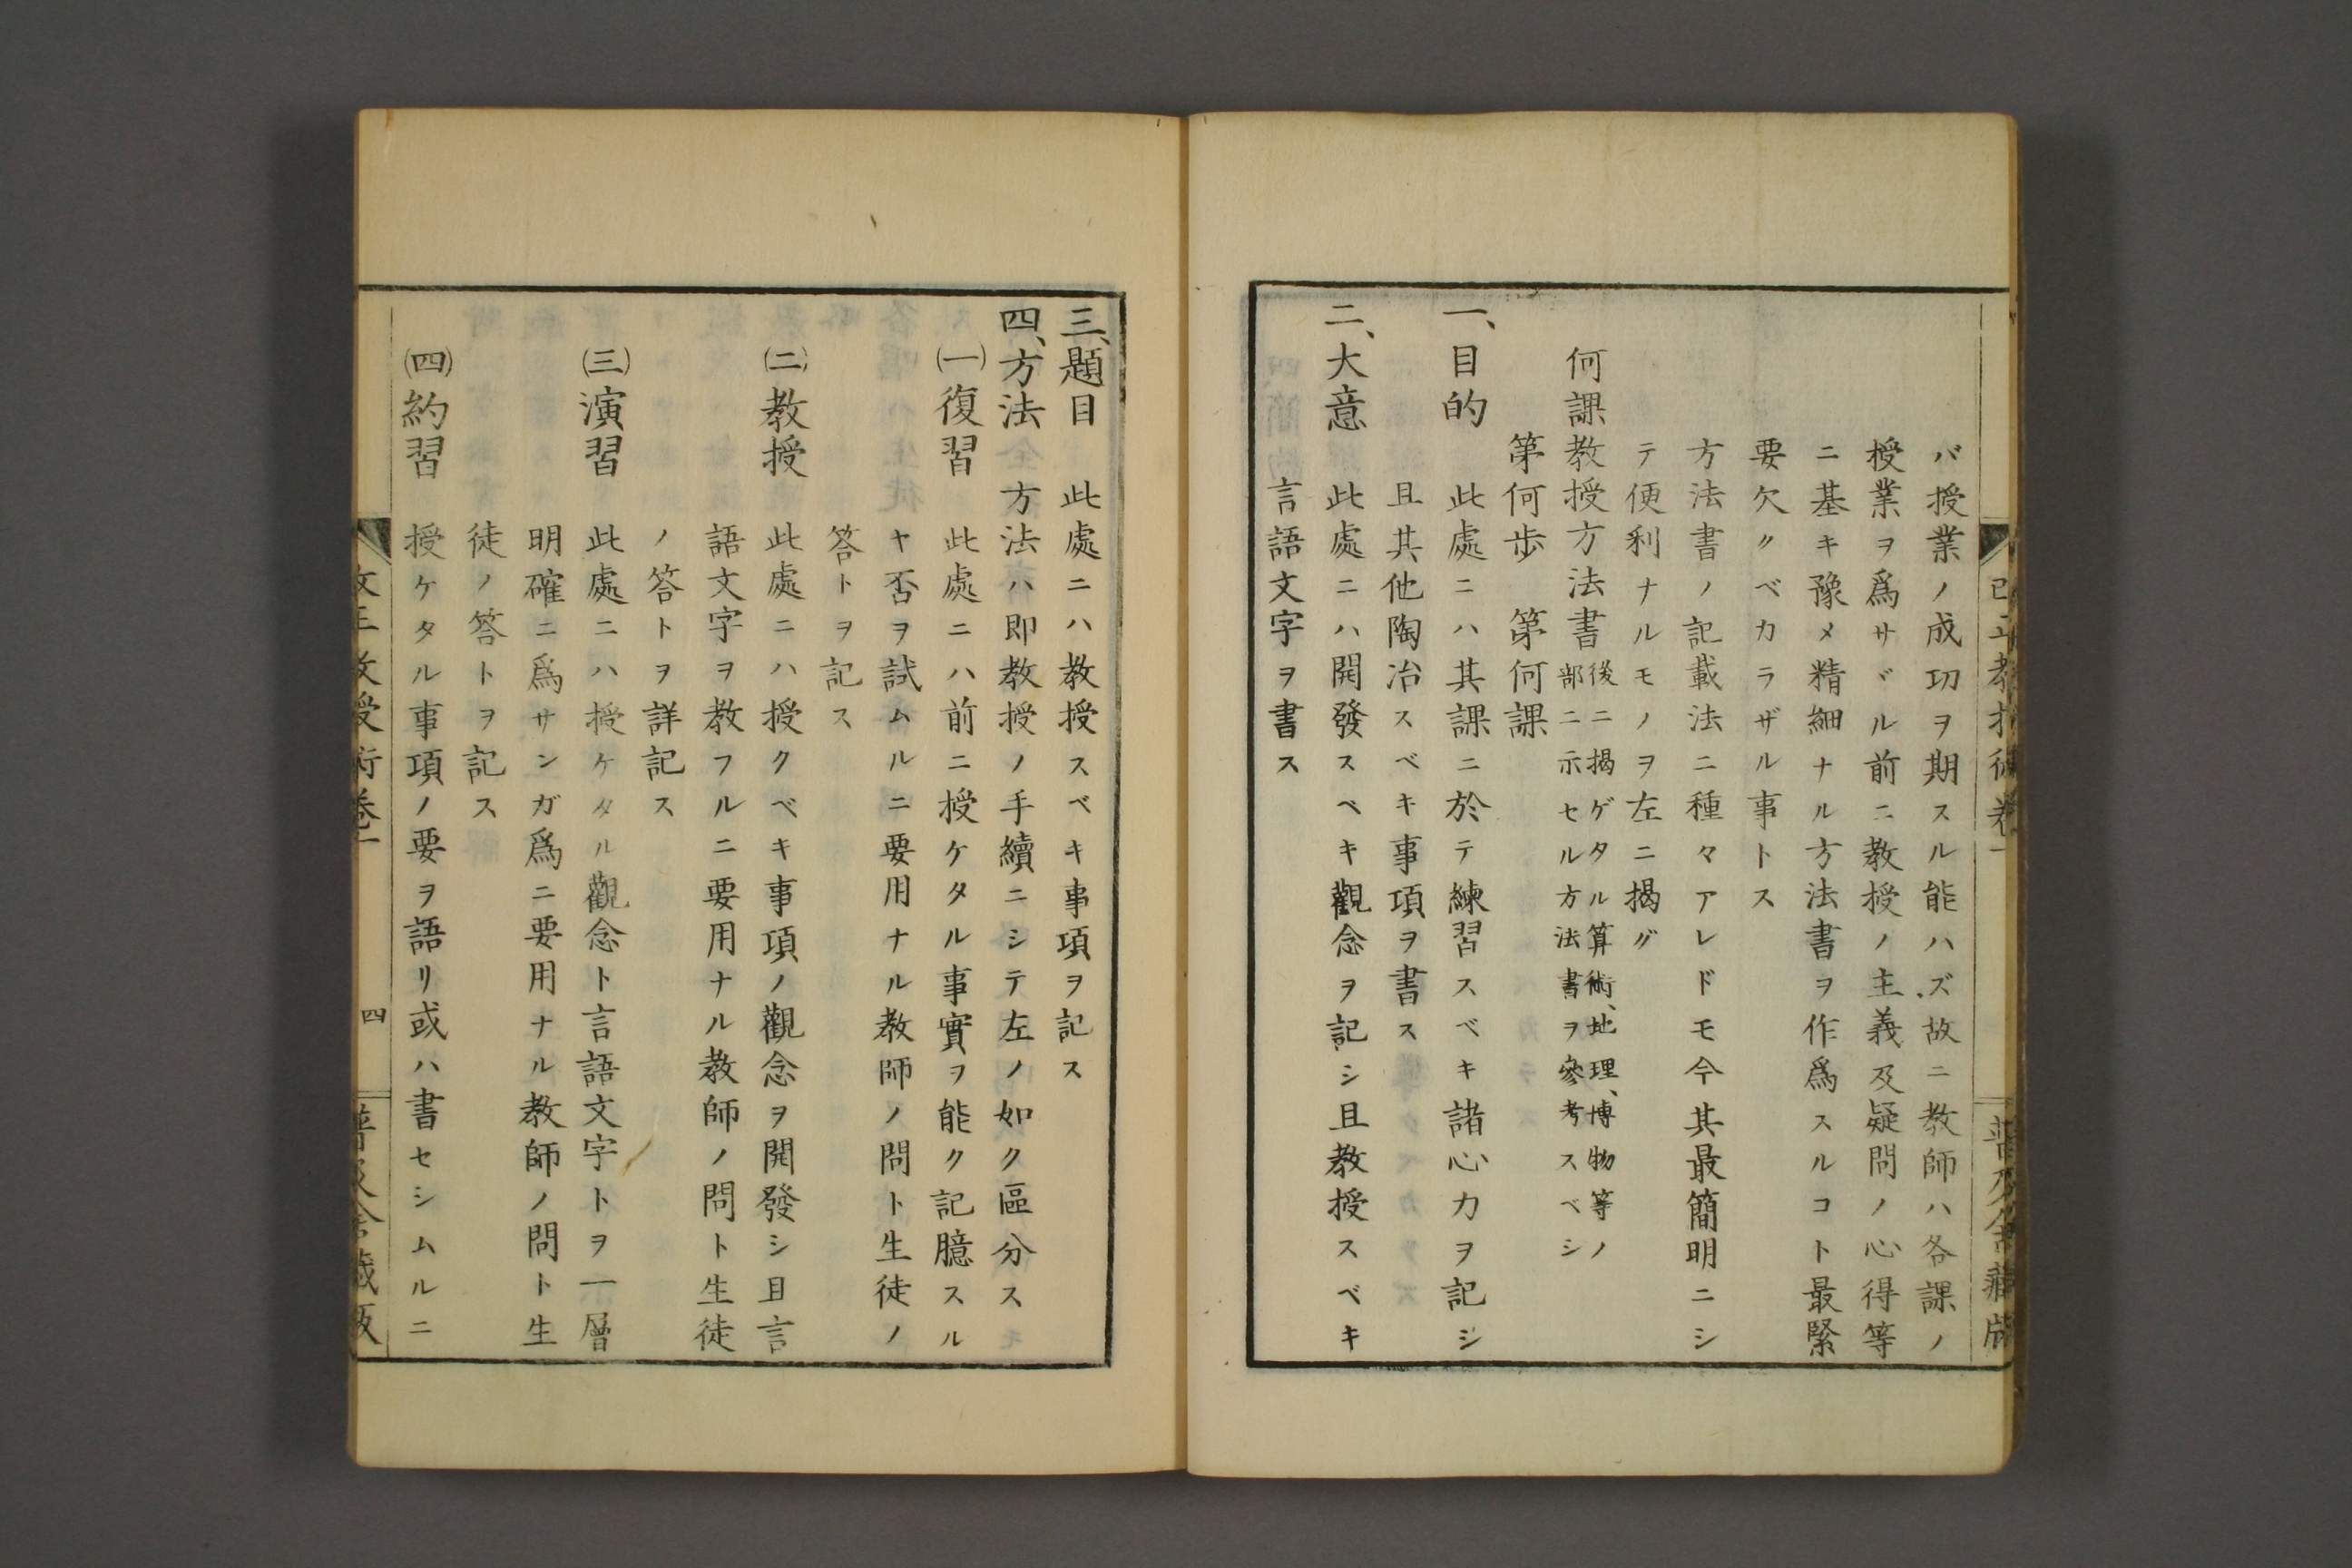 バ授業ノ成功ヲ期スル能ハズ故ニ教師ハ各課ノ
授業ヲ爲サヾル前ニ教授ノ主義及疑問ノ心得等
ニ基キ豫メ精細ナル方法書ヲ作爲スルコト最緊
要欠クベカラザル事トス
方法書ノ記載法ニ種々アレドモ今其最簡明ニシ
テ便利ナルモノヲ左ニ揭グ
何課教授方法書
後ニ揭ゲタル算術、地理、博物等ノ
部ニ示セル方法書ヲ參考スベシ
第何步 第何課
一、目的 此處ニハ其課ニ於テ練習スベキ諸心力ヲ記シ
且其他陶冶スベキ事項ヲ書ス
二、大意 此處ニハ開發スベキ觀念ヲ記シ且教授スベキ
言語文字ヲ書ス
三、題目 此處ニハ教授スベキ事項ヲ記ス
四、方法 方法ハ即教授ノ手續ニシテ左ノ如ク區分ス
㈠復習 此處ニハ前ニ授ケタル事實ヲ能ク記臆スル
ヤ否ヲ試ムルニ要用ナル教師ノ問ト生徒ノ
答トヲ記ス
㈡教授 此處ニハ授クベキ事項ノ觀念ヲ開發シ且言
語文字ヲ教フルニ要用ナル教師ノ問ト生徒
ノ答トヲ詳記ス
㈢演習 此處ニハ授ケタル觀念ト言語文字トヲ一層
明確ニ爲サンガ爲ニ要用ナル教師ノ問ト生
徒ノ答トヲ記ス
㈣約習 授ケタル事項ノ要ヲ語リ或ハ書セシムルニ
教授術卷一
四
普及舍藏版